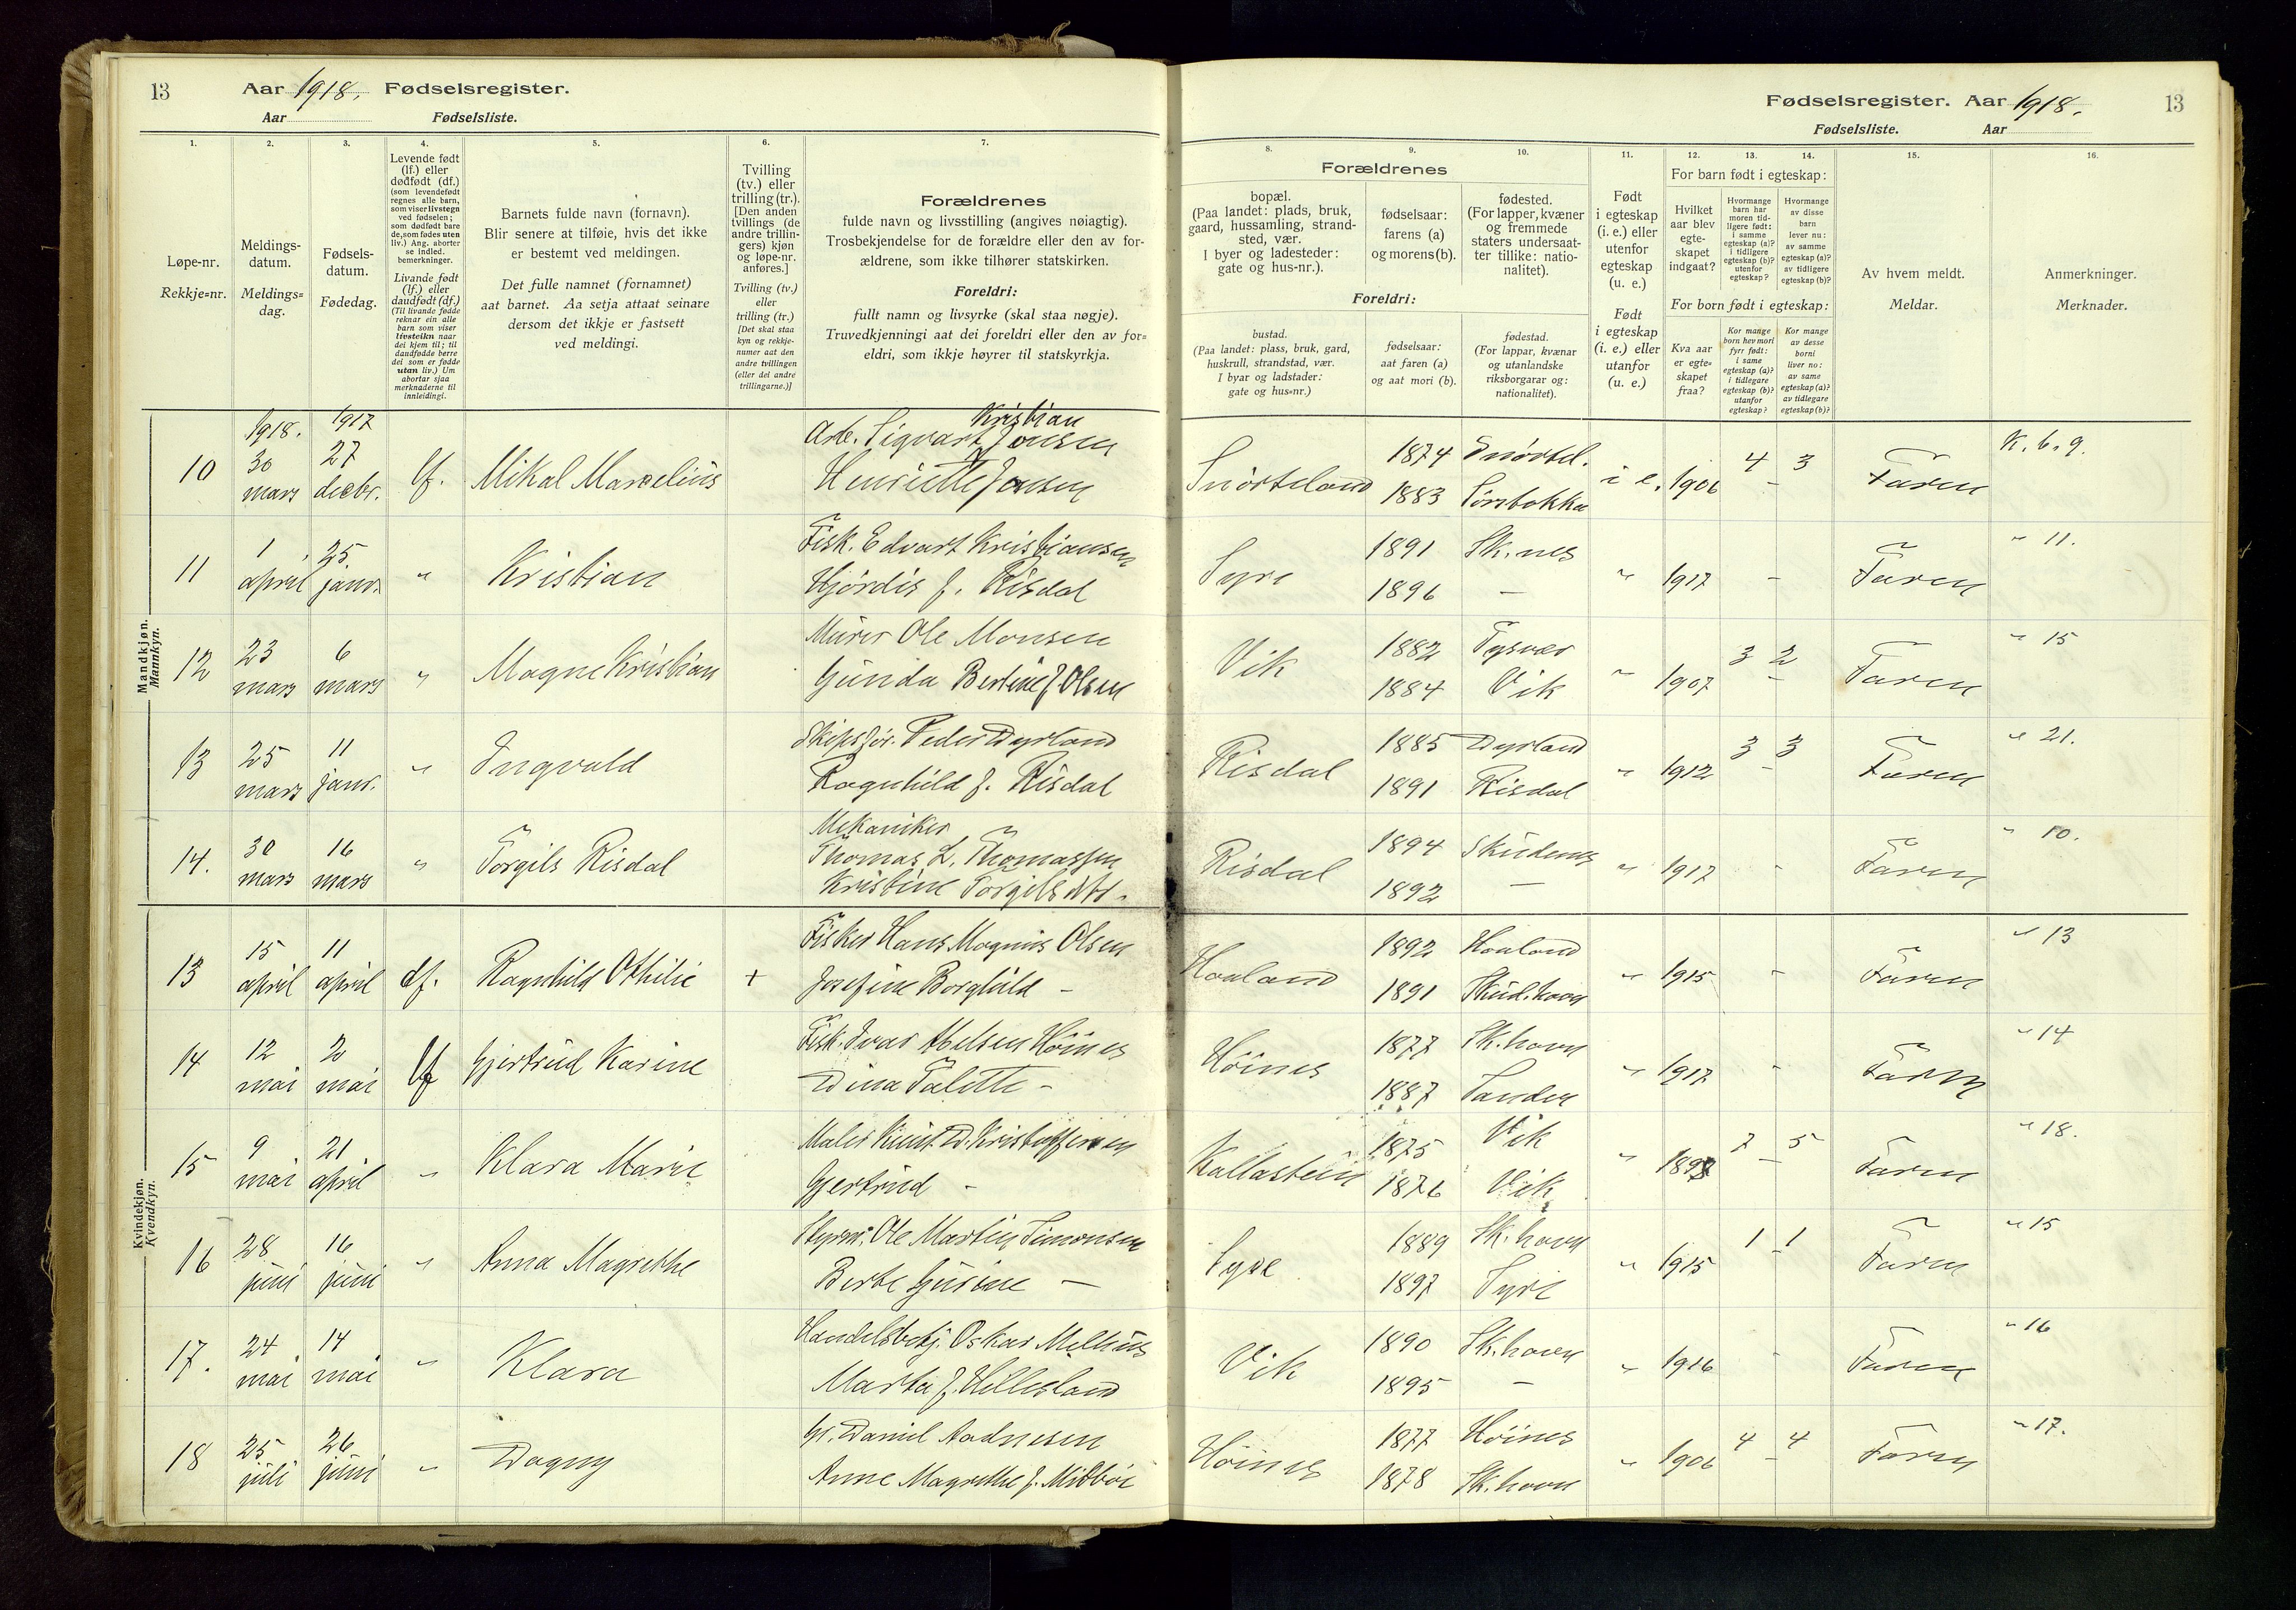 13
Aar 1918. Fødselsregister.
Aar Fødselsliste.
1.
2.
3.
4.
5.
6.
7.
Løpe-nr.
Rekkje=nr.
Meldings-
datum.
Meldings=
dag.
Fødsels-
datum.
Fødedag.
Levende født
(lf.) eller
dødfødt (df.)
(som levendefødt
regnes alle barn,
som viser livstegn
ved fødselen;
som dødfødt bare
de, som fødes uten
liv.) Ang. aborter
se indled.
bemerkninger.
Livande født
(lf.) eller
daudfødt (df.)
(Til livande fødde
reknar ein alle
barn som viser
livsteikn naar
dei kjem til; til
daudfødde berre
dei som er fødde
utan liv.) Um
abortar sjaa
merknaderne til
innleidingi.
Barnets fulde navn (fornavn).
Blir senere at tilføie, hvis det ikke
er bestemt ved meldingen.
Det fulle namnet (fornamnet)
aat barnet. Aa setja attaat seinare
dersom det ikkje er fastsett
ved meldingi.
Tvilling
(tv.) eller
trilling (tr.).
[Den anden
tvillings (de
andre trillin-
gers) kjøn
og løpe-nr.
anføres.]
Tvilling (tv.)
eller
trilling (tr.)
[Det skal staa
kyn og rekkje-
numer aat den
andre tvillingen
(eller dei andre
trillingarne.)]
Forældrenes
fulde navn og livsstilling (angives nøiagtig).
Trosbekjendelse for de forældre eller den av for-
ældrene, som ikke tilhører statskirken.
Foreldri:
fullt namn og livsyrke (skal staa nøgje).
Truvedkjenningi aat dei foreldri eller den av for=
eldri, som ikkje høyrer til statskyrkja.
Mandkjøn.
Mannkyn.
10
1918.
30
mars
1917
27
decbr.
lf.
Mikal Marselius
Arb. Sigvart Kristian Jonsen
Henriette Jonsen
11
1
april
25
janr.
"
Kristian
Fisk. Edvart Kristiansen
Hjördis f. Risdal
12
23
mars
6
mars
"
Magne Kristian
Murer Ole Monsen
Gunda Bertine f. Olsen
13
25
mars
11
janr.
"
Ingvald
Skipsfør. Peder Dyrland
Ragnhild f. Risdal
14.
30
mars
16
mars
"
Torgils Risdal
Mekaniker
Thomas L. Thomassen
Kristine Torgilsdtr.
Kvindekjøn.
Kvendkyn.
13
15
april
11
april
df.
Ragnhild Othilie
+
Fisker Hans Magnus Olsen
Josefine Borghild -
14
12
mai
2
mai
lf
Gjertrud Karine
Fisk. Ivar Abelsen Höines
Dina Talette -
15
9
mai
21
april
"
Klara Marie
Maler Knut D. Kristoffersen
Gjertrud -
16
28
juni
16
juni
"
Anna Magrethe
Styrm. Ole Martin Simonsen
Berte Gurine -
17.
24
mai
14
mai
"
Klara
Handelsbetj. Oskar Melhus
Marta f. Hellesland
18
25
juli
26
juni
"
Dagny
Gr. Daniel Aadnesen
Anne Magrethe f. Midböe
Fødselsregister. Aar 1918.
13
Fødselsliste. Aar
8.
9.
10.
11.
12.
13.
14.
15.
16.
Forældrenes
bopæl.
(Paa landet: plads, bruk,
gaard, hussamling, strand-
sted, vær.
I byer og ladesteder:
gate og hus-nr.).
fødselsaar:
farens (a)
og morens (b).
fødested.
(For lapper, kvæner
og fremmede
staters undersaat-
ter tillike: natio-
nalitet).
Foreldri:
bustad.
(Paa landet: plass, bruk, gard,
huskrull, strandstad, vær.
I byar og ladstader:
gate og hus=nr.)
fødselsaar:
aat faren (a)
og aat mori (b).
fødestad.
(For lappar, kvænar
og utanlandske
riksborgarar og:
nationalitet).
Født
i egteskap
(i. e.) eller
utenfor
egteskap
(u. e.)
Født
i egteskap
(i. e.) eller
utanfor
(u. e.)
For barn født i egteskap:
Hvilket
aar blev
egte-
skapet
indgaat?
Hvormange
barn har
moren tid-
ligere født:
i samme
egteskap (a)?
i tidligere
egteskap (b)?
utenfor
egteskap?
Hvormange
av disse
barn
lever nu:
av samme
egteskap (a)?
av tidligere
egteskap (b)?
For born født i egteskap:
Kva aar
er egte=
skapet
fraa?
Kor mange
born hev mori
fyrr født:
i same
egteskap (a)?
i tidlegare
egteskap (b)?
utanfor
egteskap?
Kor mange
av desse
borni
liver no:
av same
egteskap (a)?
av tidlegare
egteskap (b)?
Av hvem meldt.
Meldar.
Anmerkninger.
Merknader.
Snörteland
1874 Snörtel.
1883 Sörstokke
i e. 1906 4 - 3 Faren K. b. 9.
Syre
1891 Sk.nes
1896 -
" 1917 - Faren " 11.
Vik
1882 Tysvær
1884 Vik
" 1907 3 - 2 Faren " 15
Risdal
1885 Dyrland
1891 Risdal
" 1912 3 - 3 Faren " 21.
Risdal
1894 Skudenes
1892 -
" 1917 - Faren " 10.
Hovland
1892 Hovland
1891 Skud.havn
" 1915 - Faren " 13
Höines
1877 Sk.havn
1887 Sanden
" 1917 - Faren " 14
Kallastein
1875 Vik
1876 Vik
" 7 - 5 Faren " 18.
Syre
1889 Sk.havn
1897 Syre
" 1915 1 - 1 Faren " 15
Vik
1890 Sk.havn
1895 -
" 1916 - Faren " 16
Höines
1877 Höines
1878 Sk.havn
" 1906 4 - 4 Faren " 17.